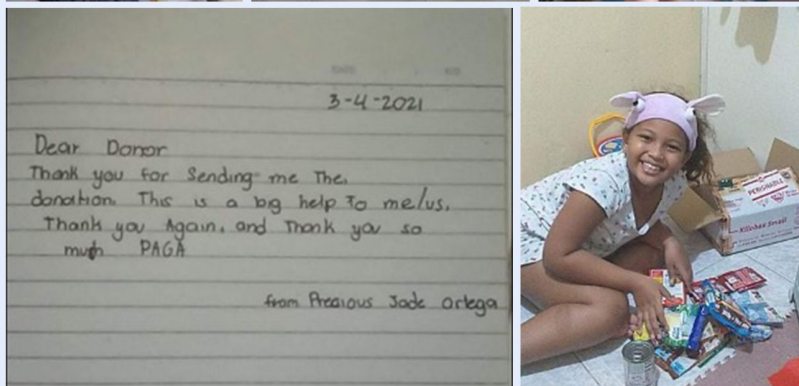 3-4-2021
Dear Donor
Thank you for Sending me The.
donation. This is a big help To me/us.
Thank you Again, and Thank you so
much PAGA
from Precious Jade Ortega
PERISHABLE
Kilobox Small